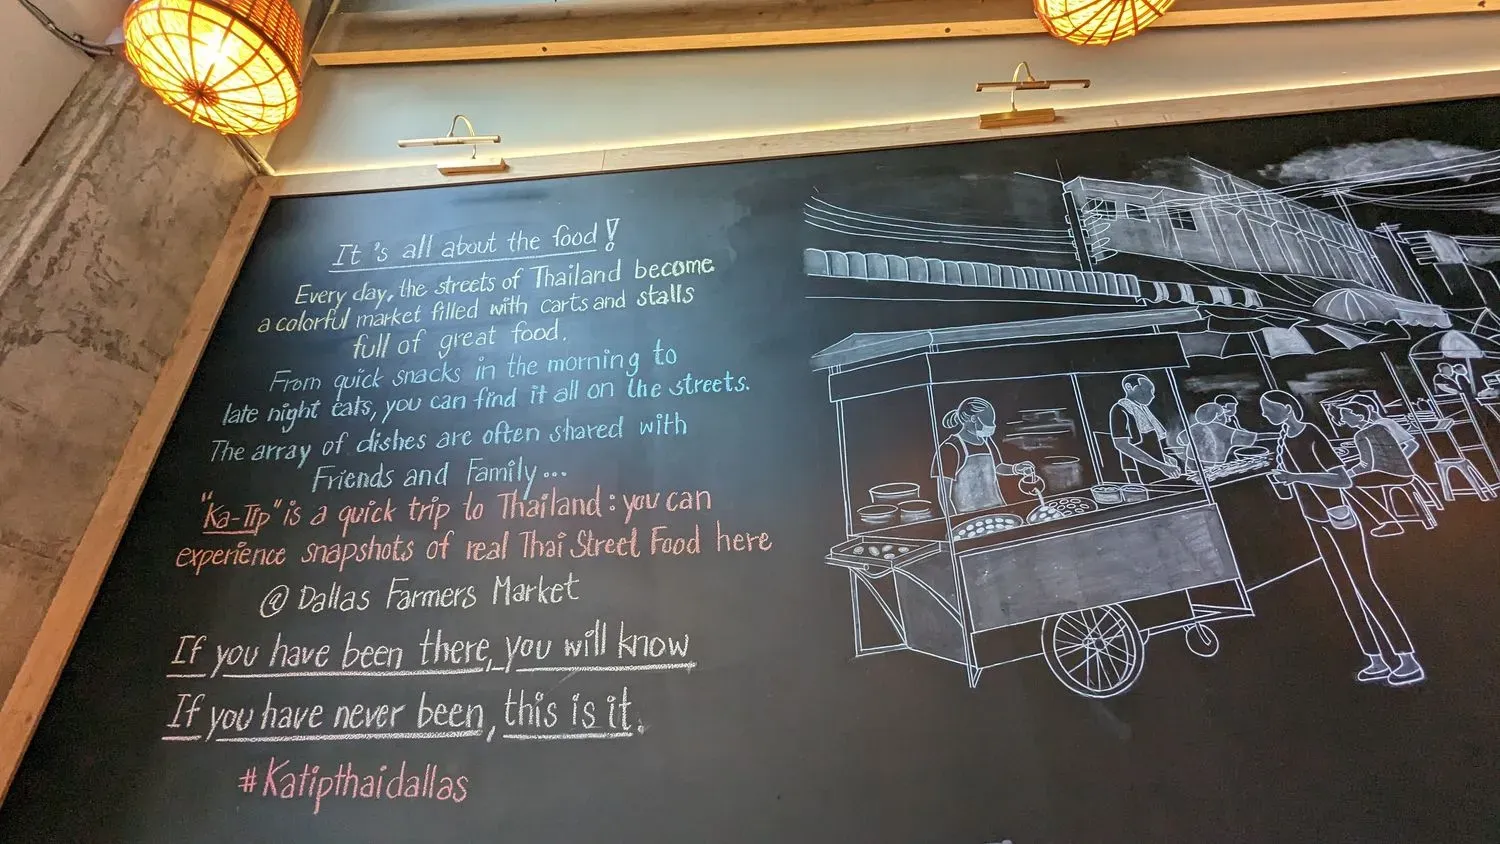 It's all about the food!
Every day, the streets of Thailand become
a colorful market filled with carts and stalls
full of great food.
From quick snacks in the morning to
late night eats, you can find it all on the streets.
The array of dishes are often shared with
Friends and Family...
"Ka-Tip" is a quick trip to Thailand: you can
experience snapshots of real Thai Street Food here
@ Dallas Farmers Market
If you have been there, you will know
If you have never been, this is it.
#Katipthaidallas